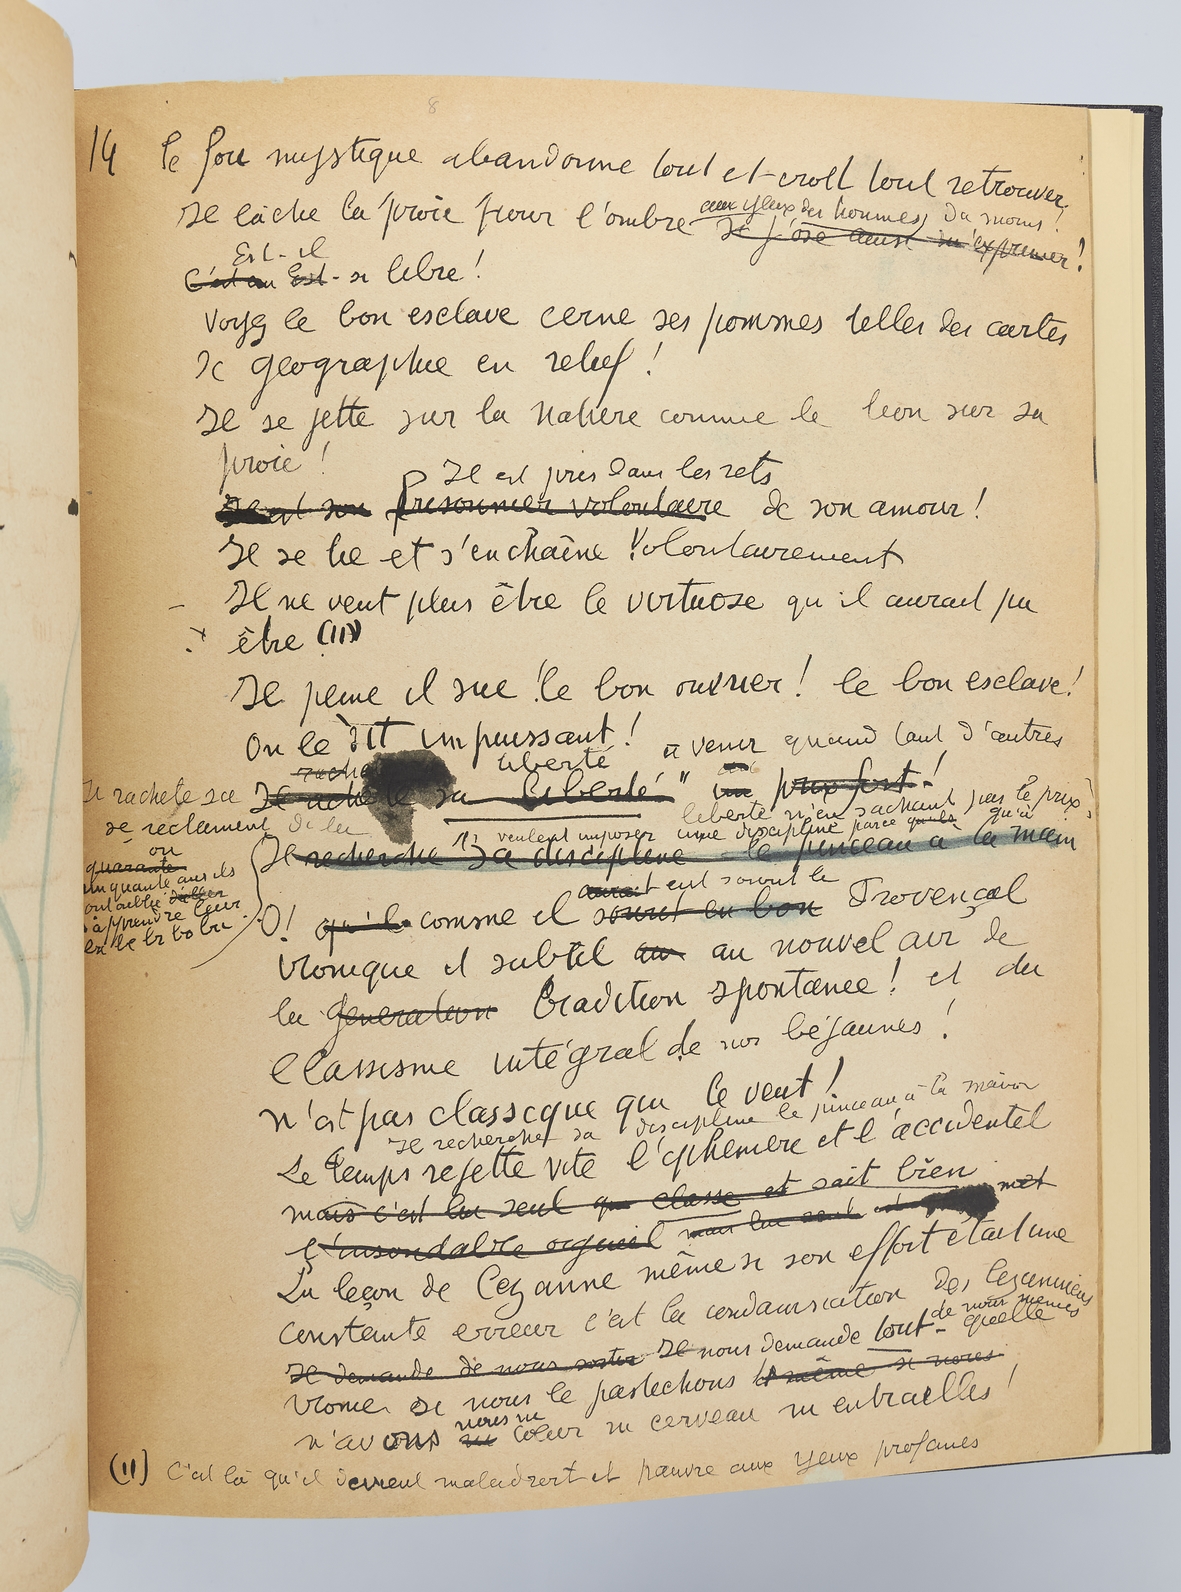 8
14 le fou mystique abandonne tout et croit tout retrouver.
Il lâche la proie pour l'ombre aux yeux des hommes, du moins!
si j'ose ainsi m'exprimer!
Est-il
C'est un Est-si libre!
Voyez le bon esclave cerne ses pommes telles des cartes
de géographie en relief!
Il se jette sur la nature comme le lion sur sa
proie!
Il est pris dans les rets
prisonnier volontaire de son amour!
Il se lie et s'enchaîne volontairement
Il ne veut plus être le virtuose qu'il aurait pu
être (11)
Il peine il sue! le bon ouvrier! le bon esclave!
On le dit impuissant! à venir quand tant d'autres
liberté
Il rachète sa Il rachète sa liberté" prix fort!
se réclament de la liberté n'en sachant pas le prix
veulent imposer une discipline parce qu'ils qu'à
Il recherche sa discipline le pinceau à la main
ou
quarante
cinquante ans ils
ont oublié
à apprendre leur
aurait eut souri le
O! qu'il comme il sourit en bon Provençal
ironique et subtil au nouvel air de
la generation tradition spontanée! et du
classisme intégral de nos béjaunes!
n'est pas classique qui le veut!
Il recherche sa discipline le pinceau à la main
Le temps rejette vite l'éphémère et l'accidentel
mais c'est lui seul qui classe et sait bien
l'insondable orgueil mais lui seul met
La leçon de Cezanne même si son effort était une
constante erreur c'est la condamnation des Cezanniens
de nous mêmes
Il demande de nous Il nous demande tout - quelle
ironie si nous le pastichons et même si nous
nous ni
n'avons ni cœur ni cerveau ni entrailles!
(11) C'est là qu'il devient maladroit et pauvre aux yeux profanes